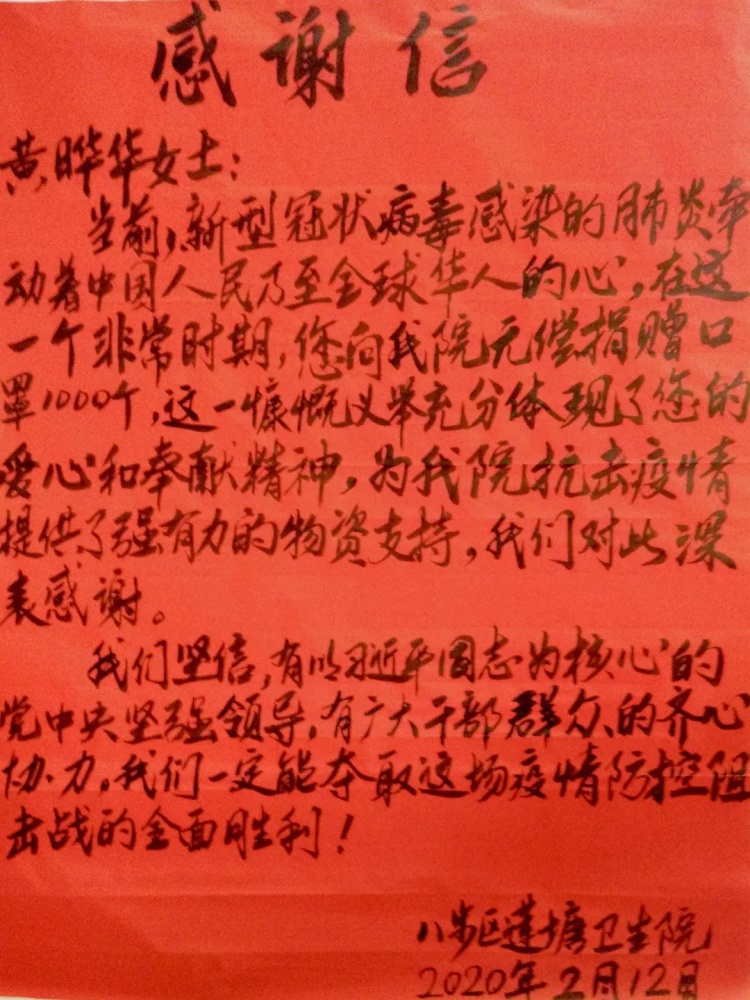 感谢信
黄晔华女士：
当前，新型冠状病毒感染的肺炎牵
动着中国人民乃至全球华人的心，在这
一个非常时期，您向我院无偿捐赠口
罩1000个，这一慷慨义举充分体现了您的
爱心和奉献精神，为我院抗击疫情
提供了强有力的物资支持，我们对此深
表感谢。
我们坚信，有以习近平同志为核心的
党中央坚强领导，有广大干部群众的齐心
协力，我们一定能夺取这场疫情防控阻
击战的全面胜利！
八步区莲塘卫生院
2020年2月12日